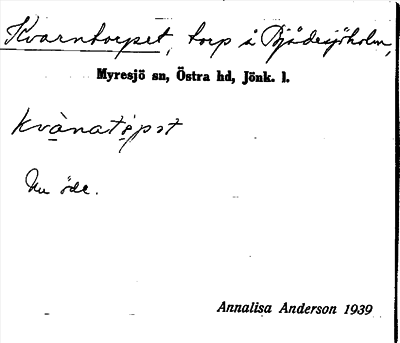 Kvarntorpet, torp å Bjädesjöholm,
Myresjö sn, Östra hd, Jönk. l.
kvànatǫpət
Nu öde.
Annalisa Anderson 1939